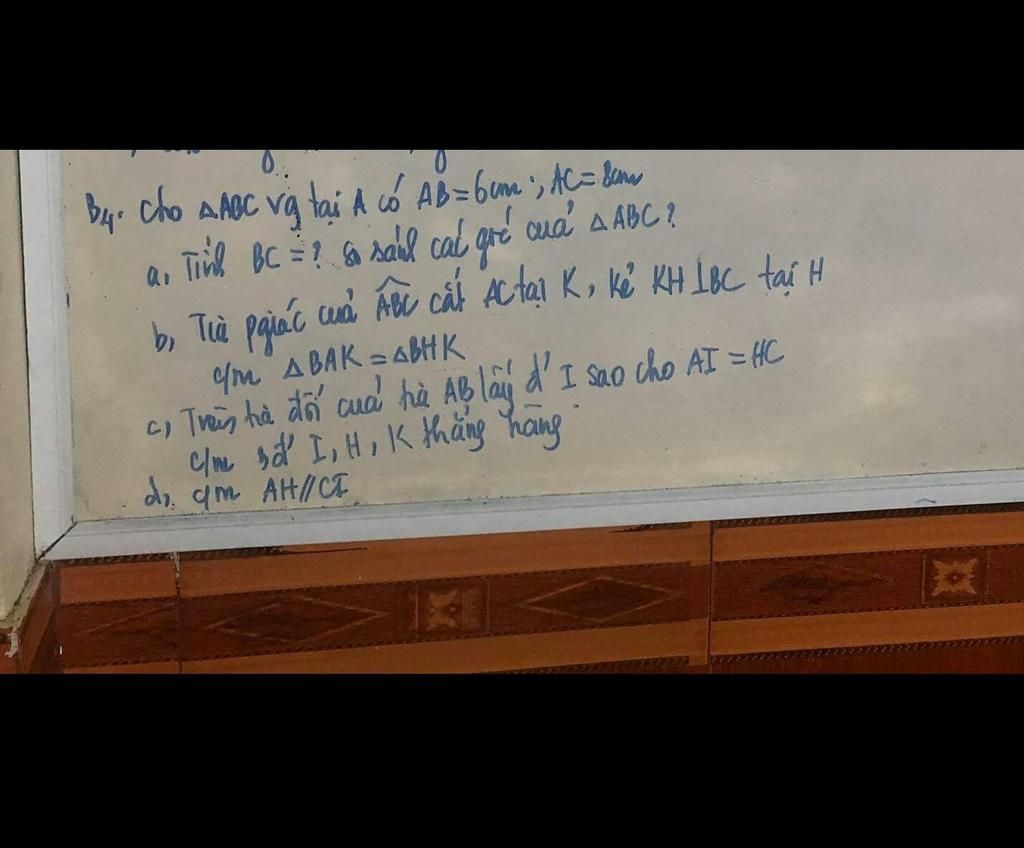 B4. Cho △ABC vg tại A có AB = 6cm ; AC = 8cm
a, Tính BC = ? So sánh các góc của △ABC ?
b, Tia pgiác của ABC cắt AC tại K, kẻ KH ⊥ BC tại H
c/m △BAK = △BHK
c, Trên tia đối của tia AB lấy đ' I sao cho AI = HC
c/m 3đ' I, H, K thẳng hàng
d, c/m AH // CI